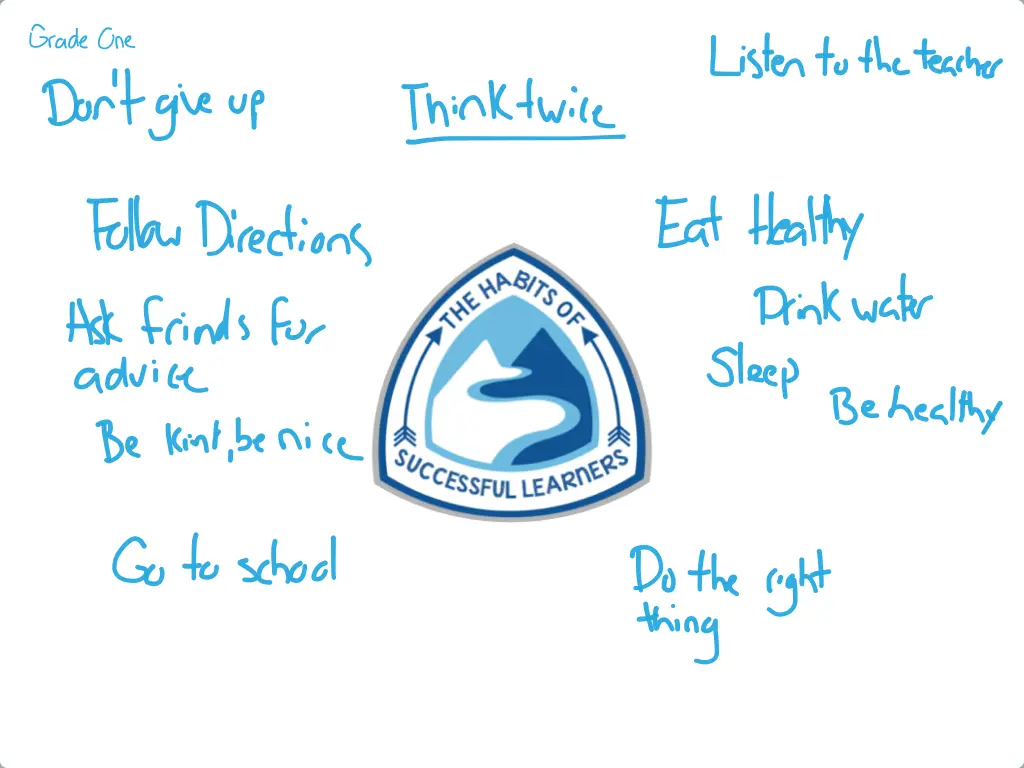 Grade One
Don't give up
Think twice
Listen to the teacher
Follow Directions
Eat Healthy
Ask frinds for
advice
Drink water
Sleep
Be healthy
Be kint, be nice
THE HABITS OF
SUCCESSFUL LEARNERS
Go to school
Do the right
thing